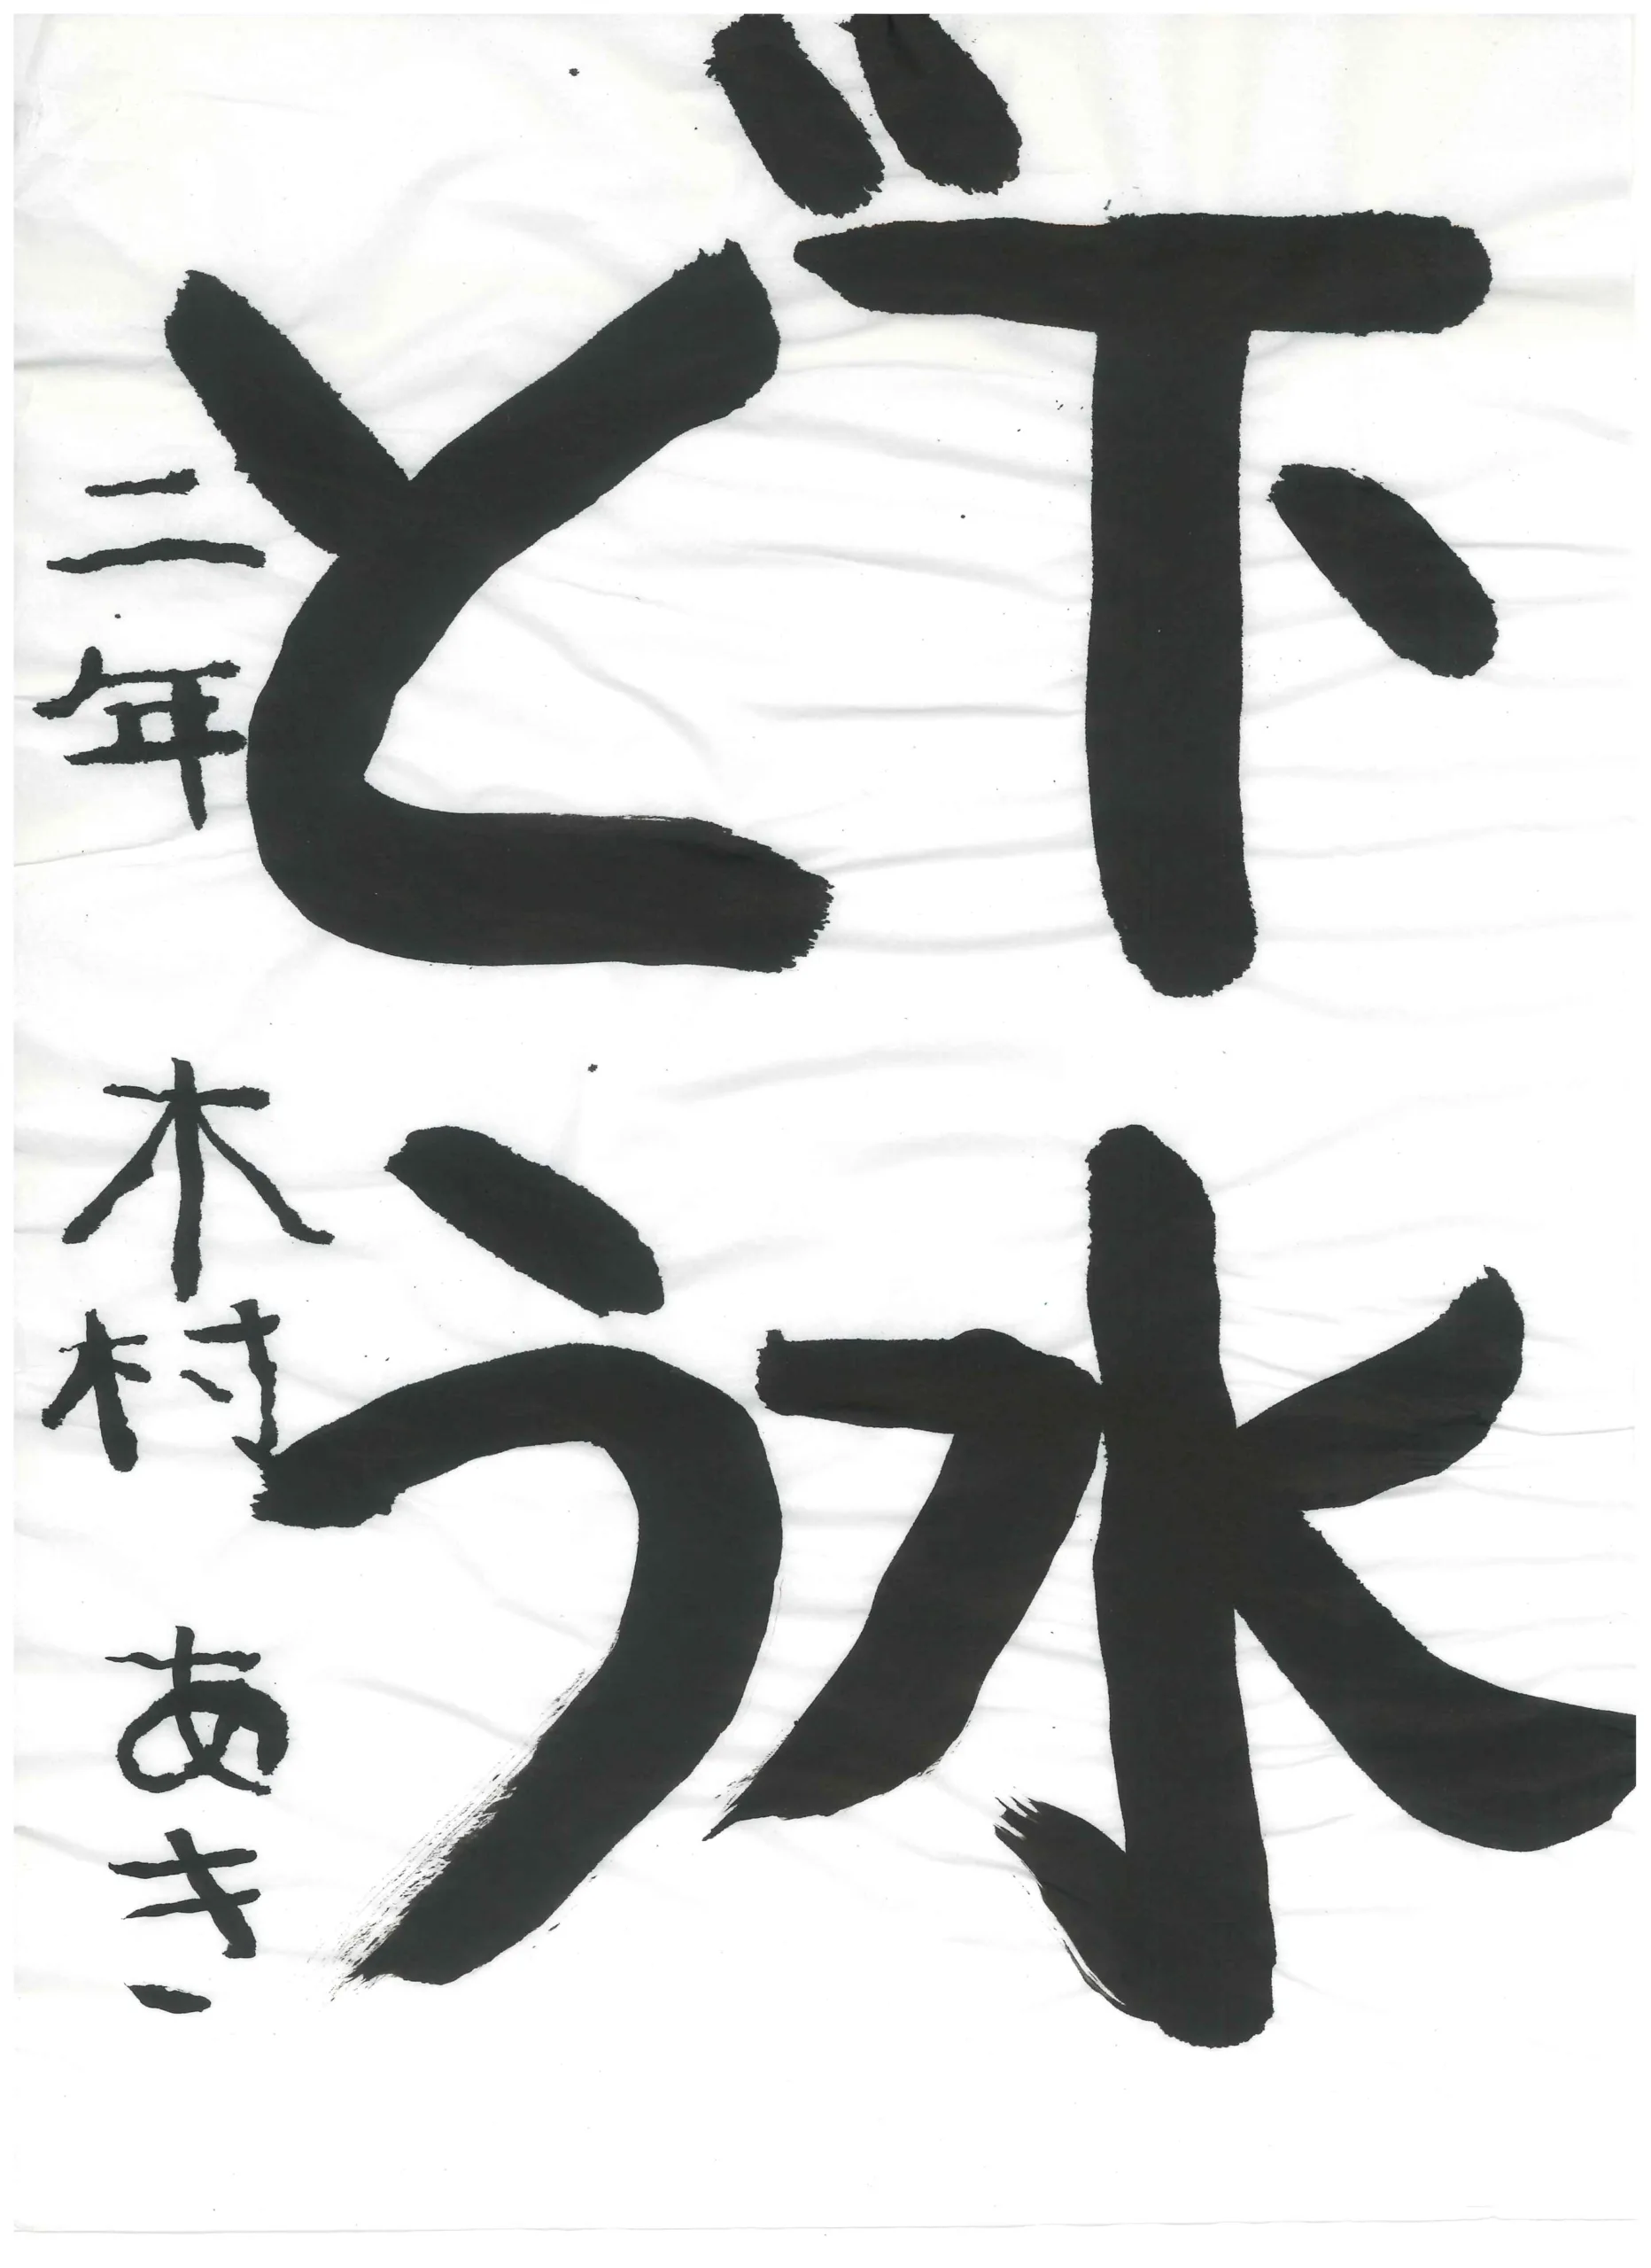 下水
どう
二年 木村 あき